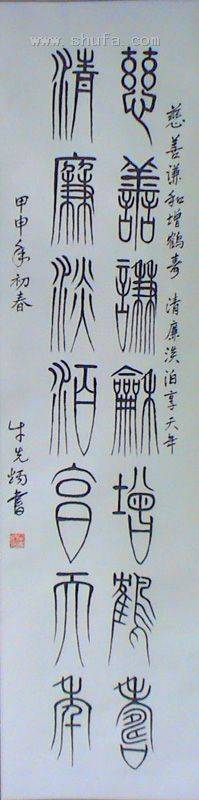 www.shufa.com
慈善谦和增鹤寿 清廉淡泊享天年
慈善謙龢增鶴壽
清廉淡泊享天年
甲申年初春
牛先炳書